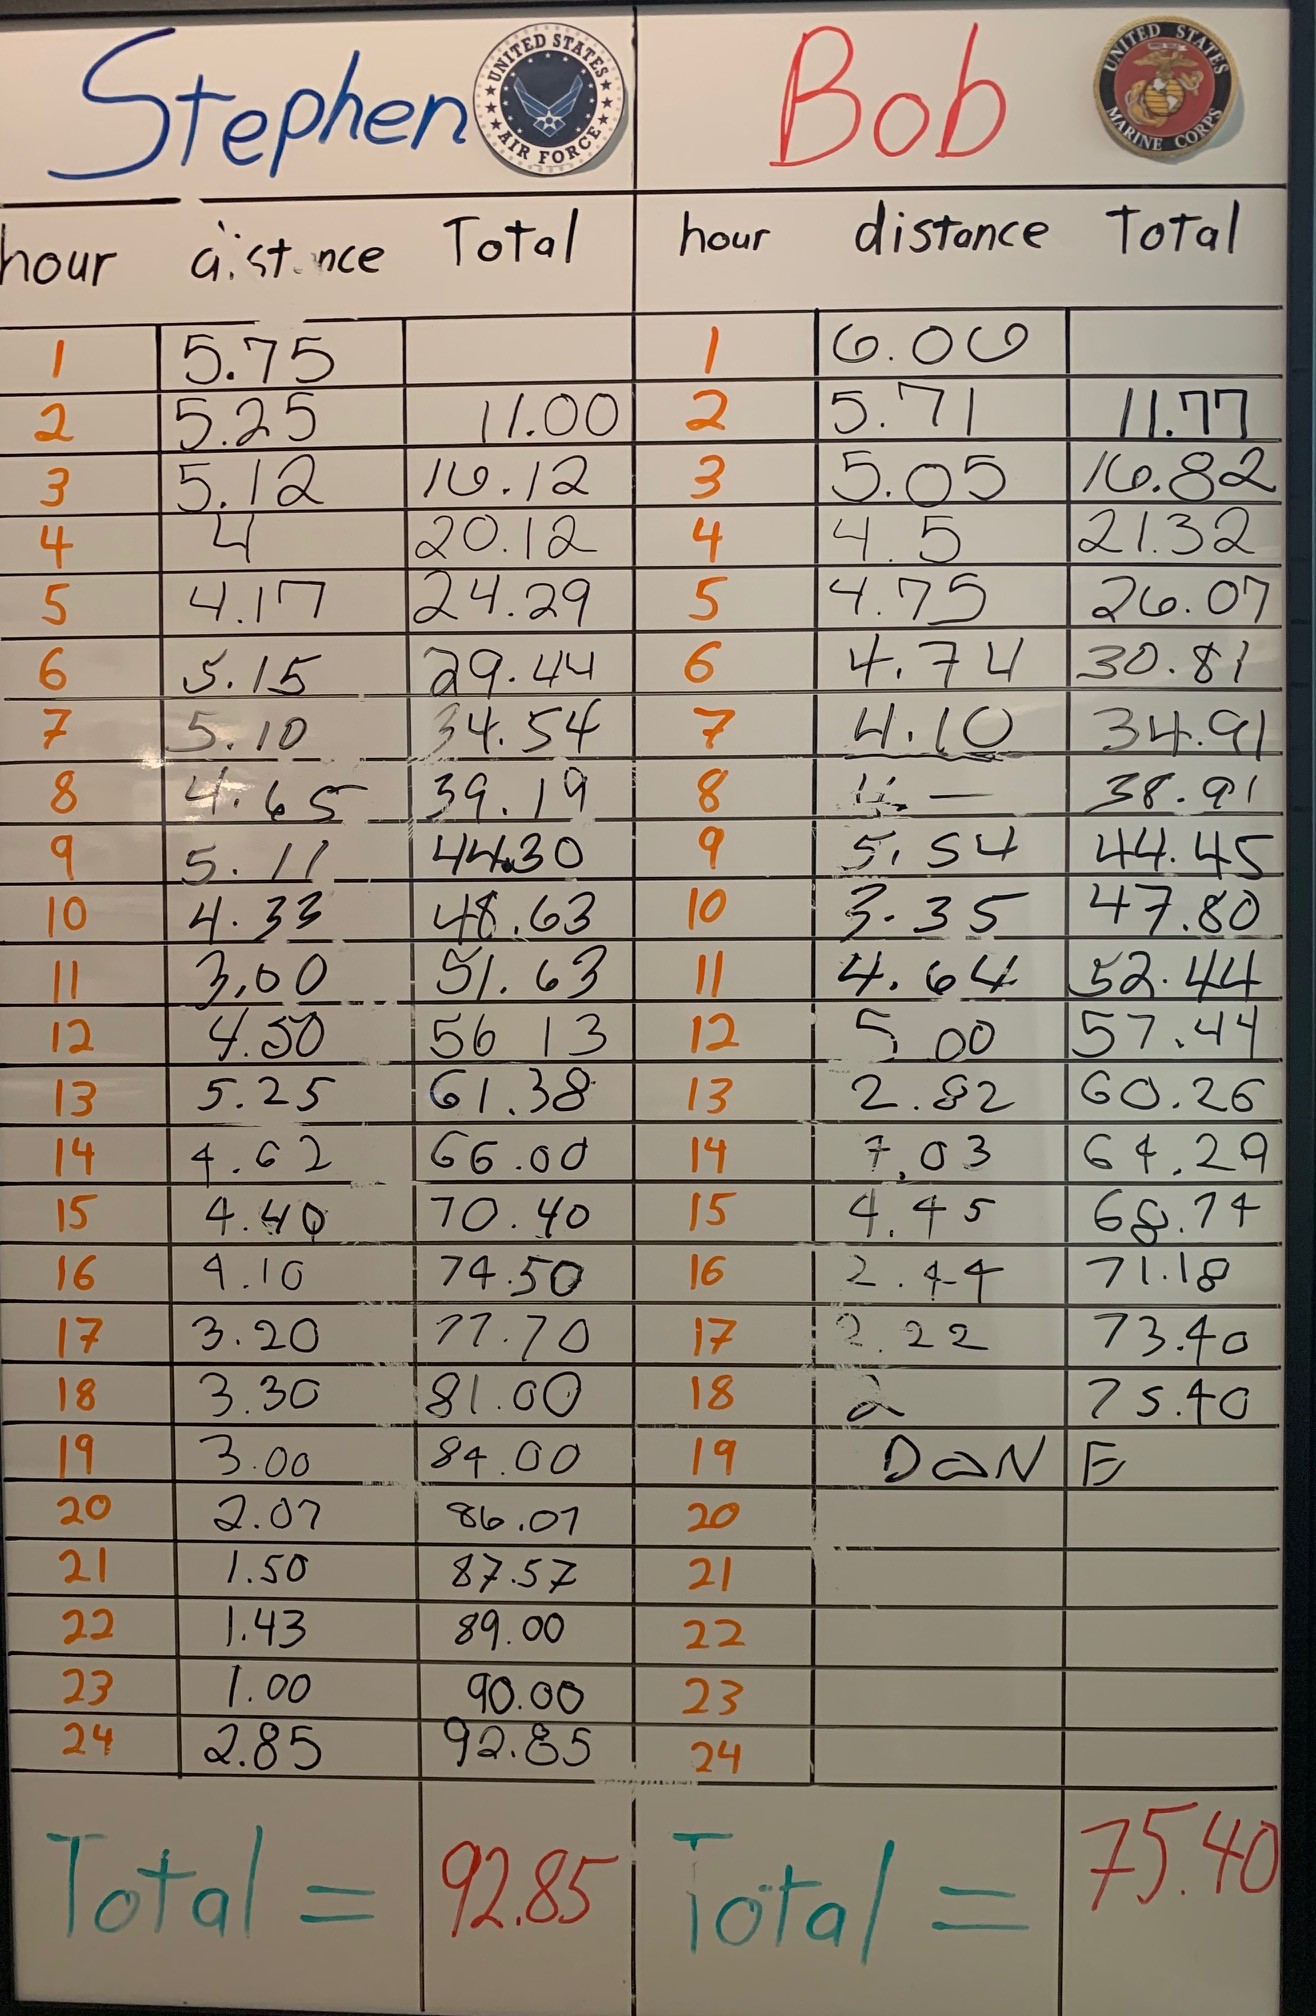 Stephen UNITED STATES AIR FORCE Bob UNITED STATES MARINE CORPS
hour distance Total hour distance Total
1 5.75 1 6.06
2 5.25 11.00 2 5.71 11.77
3 5.12 16.12 3 5.05 16.82
4 4 20.12 4 4.5 21.32
5 4.17 24.29 5 4.75 26.07
6 5.15 29.44 6 4.74 30.81
7 5.10 34.54 7 4.10 34.91
8 4.65 39.19 8 4. — 38.91
9 5.11 44.30 9 5.54 44.45
10 4.33 48.63 10 3.35 47.80
11 3.00 51.63 11 4.64 52.44
12 4.50 56 13 12 5 00 57.44
13 5.25 61.38 13 2.82 60.26
14 4.62 66.00 14 4.03 64.29
15 4.40 70.40 15 4.45 68.74
16 4.10 74.50 16 2.44 71.18
17 3.20 77.70 17 2.22 73.40
18 3.30 81.00 18 2 75.40
19 3.00 84.00 19 DONE
20 2.07 86.07 20
21 1.50 87.57 21
22 1.43 89.00 22
23 1.00 90.00 23
24 2.85 92.85 24
Total = 92.85 Total = 75.40